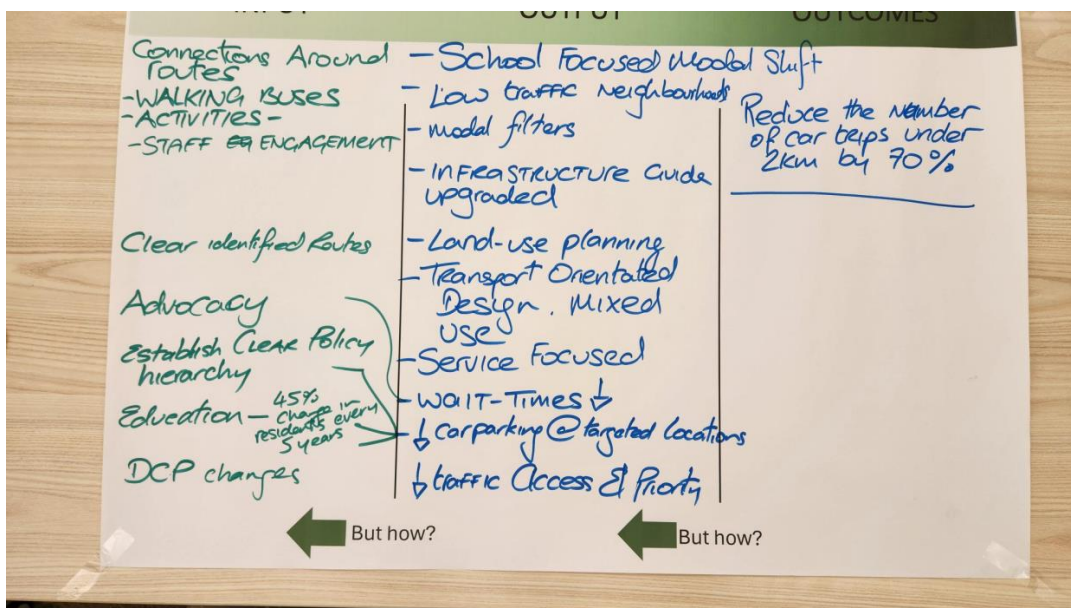 INPUT
OUTPUT
OUTCOMES
Connections Around
routes
-WALKING BUSES
-ACTIVITIES-
-STAFF ENGAGEMENT
Clear identified Routes
Advocacy
Establish Clear Policy
hierarchy
Education - 45%
change in
residents every
5 years
DCP changes
- School Focused Modal Shift
- Low traffic neighbourhoods
- modal filters
- INFRASTRUCTURE Guide
upgraded
- Land-use planning
- Transport Orientated
Design. Mixed
use
- Service Focused
- WAIT-Times ↓
- ↓ carparking @ targeted locations
↓ traffic Access & Priority
Reduce the number
of car trips under
2km by 70%
But how?
But how?